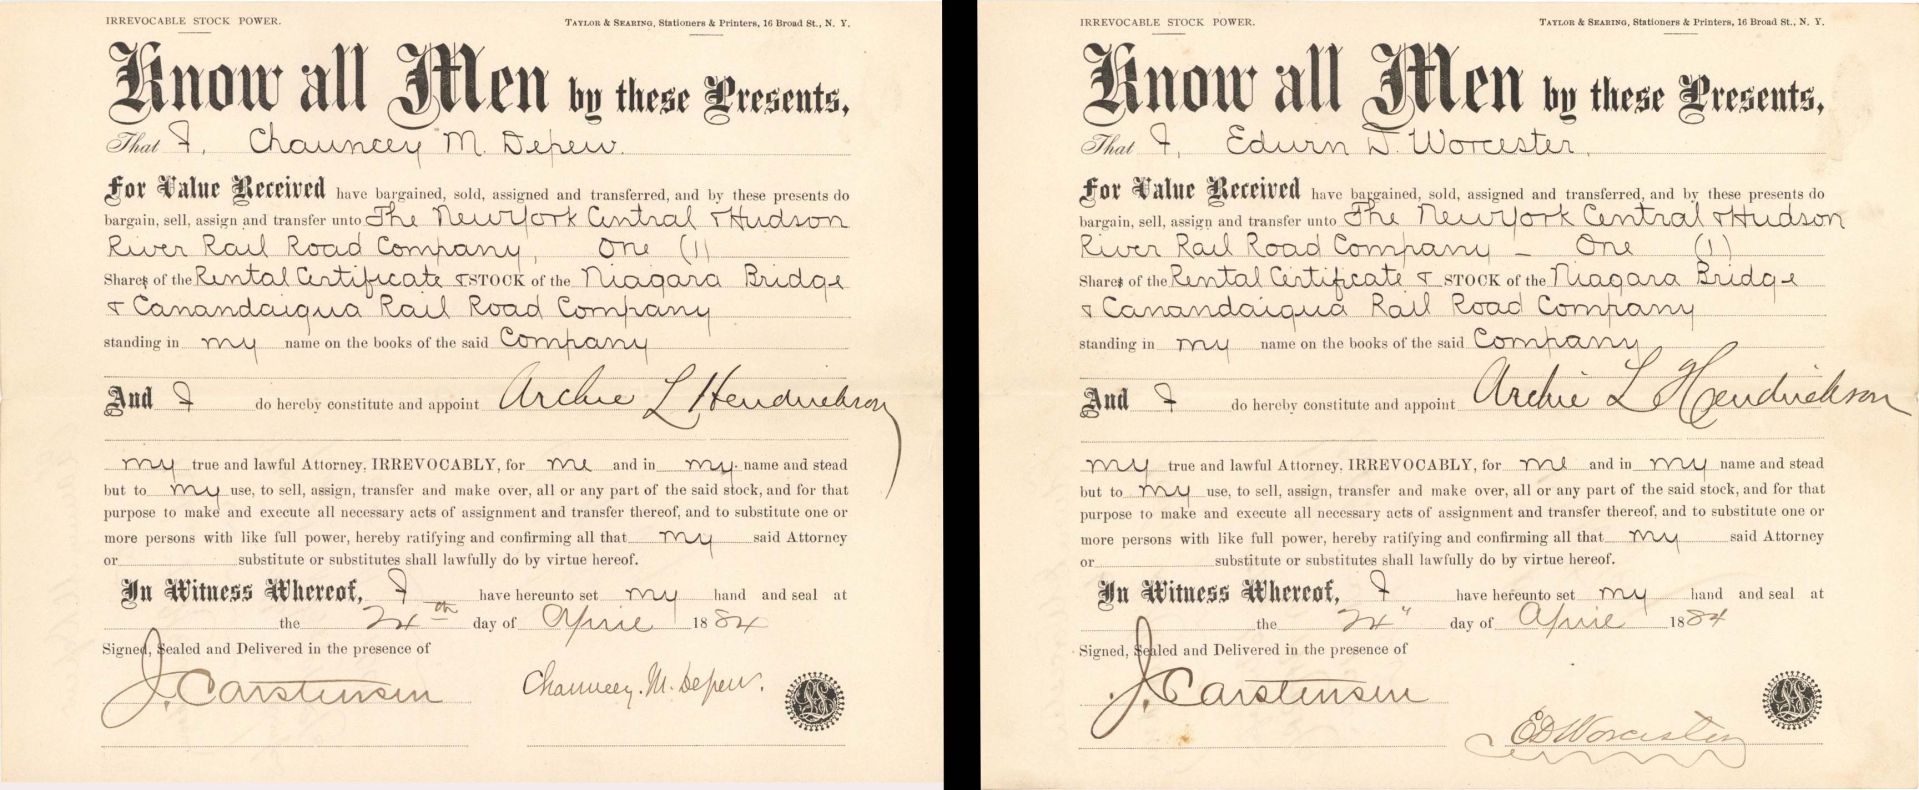 IRREVOCABLE STOCK POWER. TAYLOR & SEARING, Stationers & Printers, 16 Broad St., N. Y.
Know all Men by these Presents,
That I, Chauncey M. Depew.
For Value Received have bargained, sold, assigned and transferred, and by these presents do
bargain, sell, assign and transfer unto The New York Central & Hudson
River Rail Road Company, One (1)
Shares of the Rental Certificate & STOCK of the Niagara Bridge
& Canandaigua Rail Road Company
standing in my name on the books of the said Company
And I do hereby constitute and appoint Archie L Hendrickson
my true and lawful Attorney, IRREVOCABLY, for me and in my name and stead
but to my use, to sell, assign, transfer and make over, all or any part of the said stock, and for that
purpose to make and execute all necessary acts of assignment and transfer thereof, and to substitute one or
more persons with like full power, hereby ratifying and confirming all that my said Attorney
or substitute or substitutes shall lawfully do by virtue hereof.
In Witness Whereof, I have hereunto set my hand and seal at
the 24th day of April 1884
Signed, Sealed and Delivered in the presence of
J. Carstensen Chauncey. M. Depew.
LS
IRREVOCABLE STOCK POWER. TAYLOR & SEARING, Stationers & Printers, 16 Broad St., N. Y.
Know all Men by these Presents,
That I, Edwin D. Worcester,
For Value Received have bargained, sold, assigned and transferred, and by these presents do
bargain, sell, assign and transfer unto The New York Central & Hudson
River Rail Road Company – One (1)
Shares of the Rental Certificate & STOCK of the Niagara Bridge
& Canandaigua Rail Road Company
standing in my name on the books of the said Company
And I do hereby constitute and appoint Archie L Hendrickson
my true and lawful Attorney, IRREVOCABLY, for me and in my name and stead
but to my use, to sell, assign, transfer and make over, all or any part of the said stock, and for that
purpose to make and execute all necessary acts of assignment and transfer thereof, and to substitute one or
more persons with like full power, hereby ratifying and confirming all that my said Attorney
or substitute or substitutes shall lawfully do by virtue hereof.
In Witness Whereof, I have hereunto set my hand and seal at
the 24" day of April 1884
Signed, Sealed and Delivered in the presence of
J. Carstensen
LS
E D Worcester